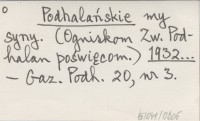 Podhalańskie my
syny. (Ogniskom Zw. Pod-
halan poświęcom.) 1932...
— Gaz. Podh. 20, nr 3.